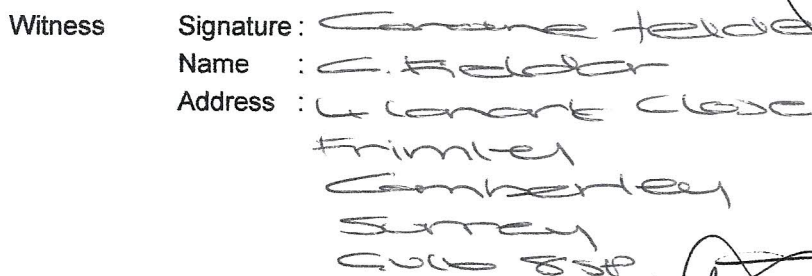 Witness Signature :
Name : C. Fielder
Address : 4 Lanark Close
Frimley
Camberley
Surrey
GU16 8SP